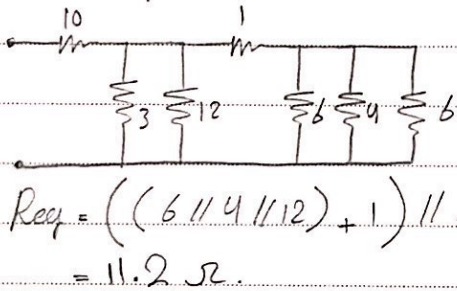 10 1
3 12 6 4 6
Req = ((6 // 4 // 12) + 1) //
= 11.2 Ω.